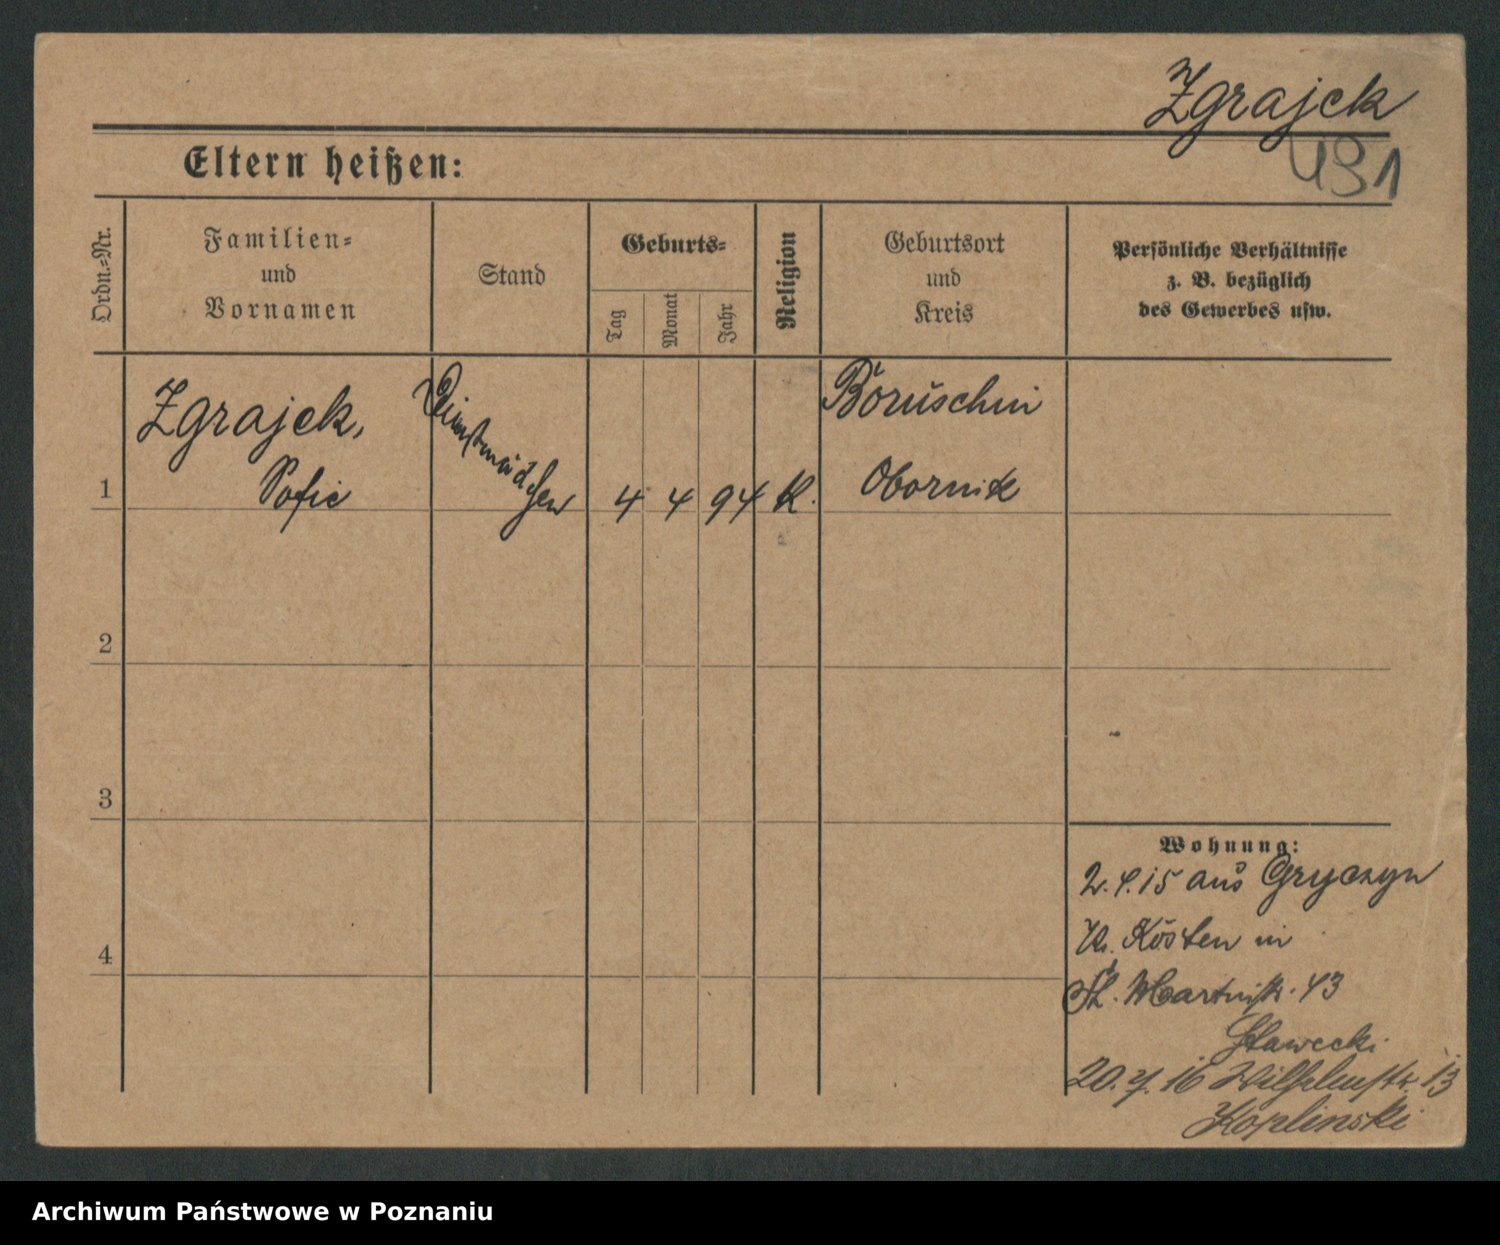 Zgrajek
491
Eltern heißen:
Ordn.=Nr.
Familien=
und
Vornamen
Stand
Geburts=
Tag
Monat
Jahr
Religion
Geburtsort
und
Kreis
Persönliche Verhältnisse
z. B. bezüglich
des Gewerbes usw.
1
Zgrajek,
Sofie
Dienstmädchen
4 4 94 K.
Boruschin
Obornik
2
3
4
Wohnung:
2. 4. 15 aus Gryczyn
Kr. Kosten in
St. Martinstr. 43
Stawecki
20. 4. 16 Wilhelmstr. 13
Koplinski
Archiwum Państwowe w Poznaniu